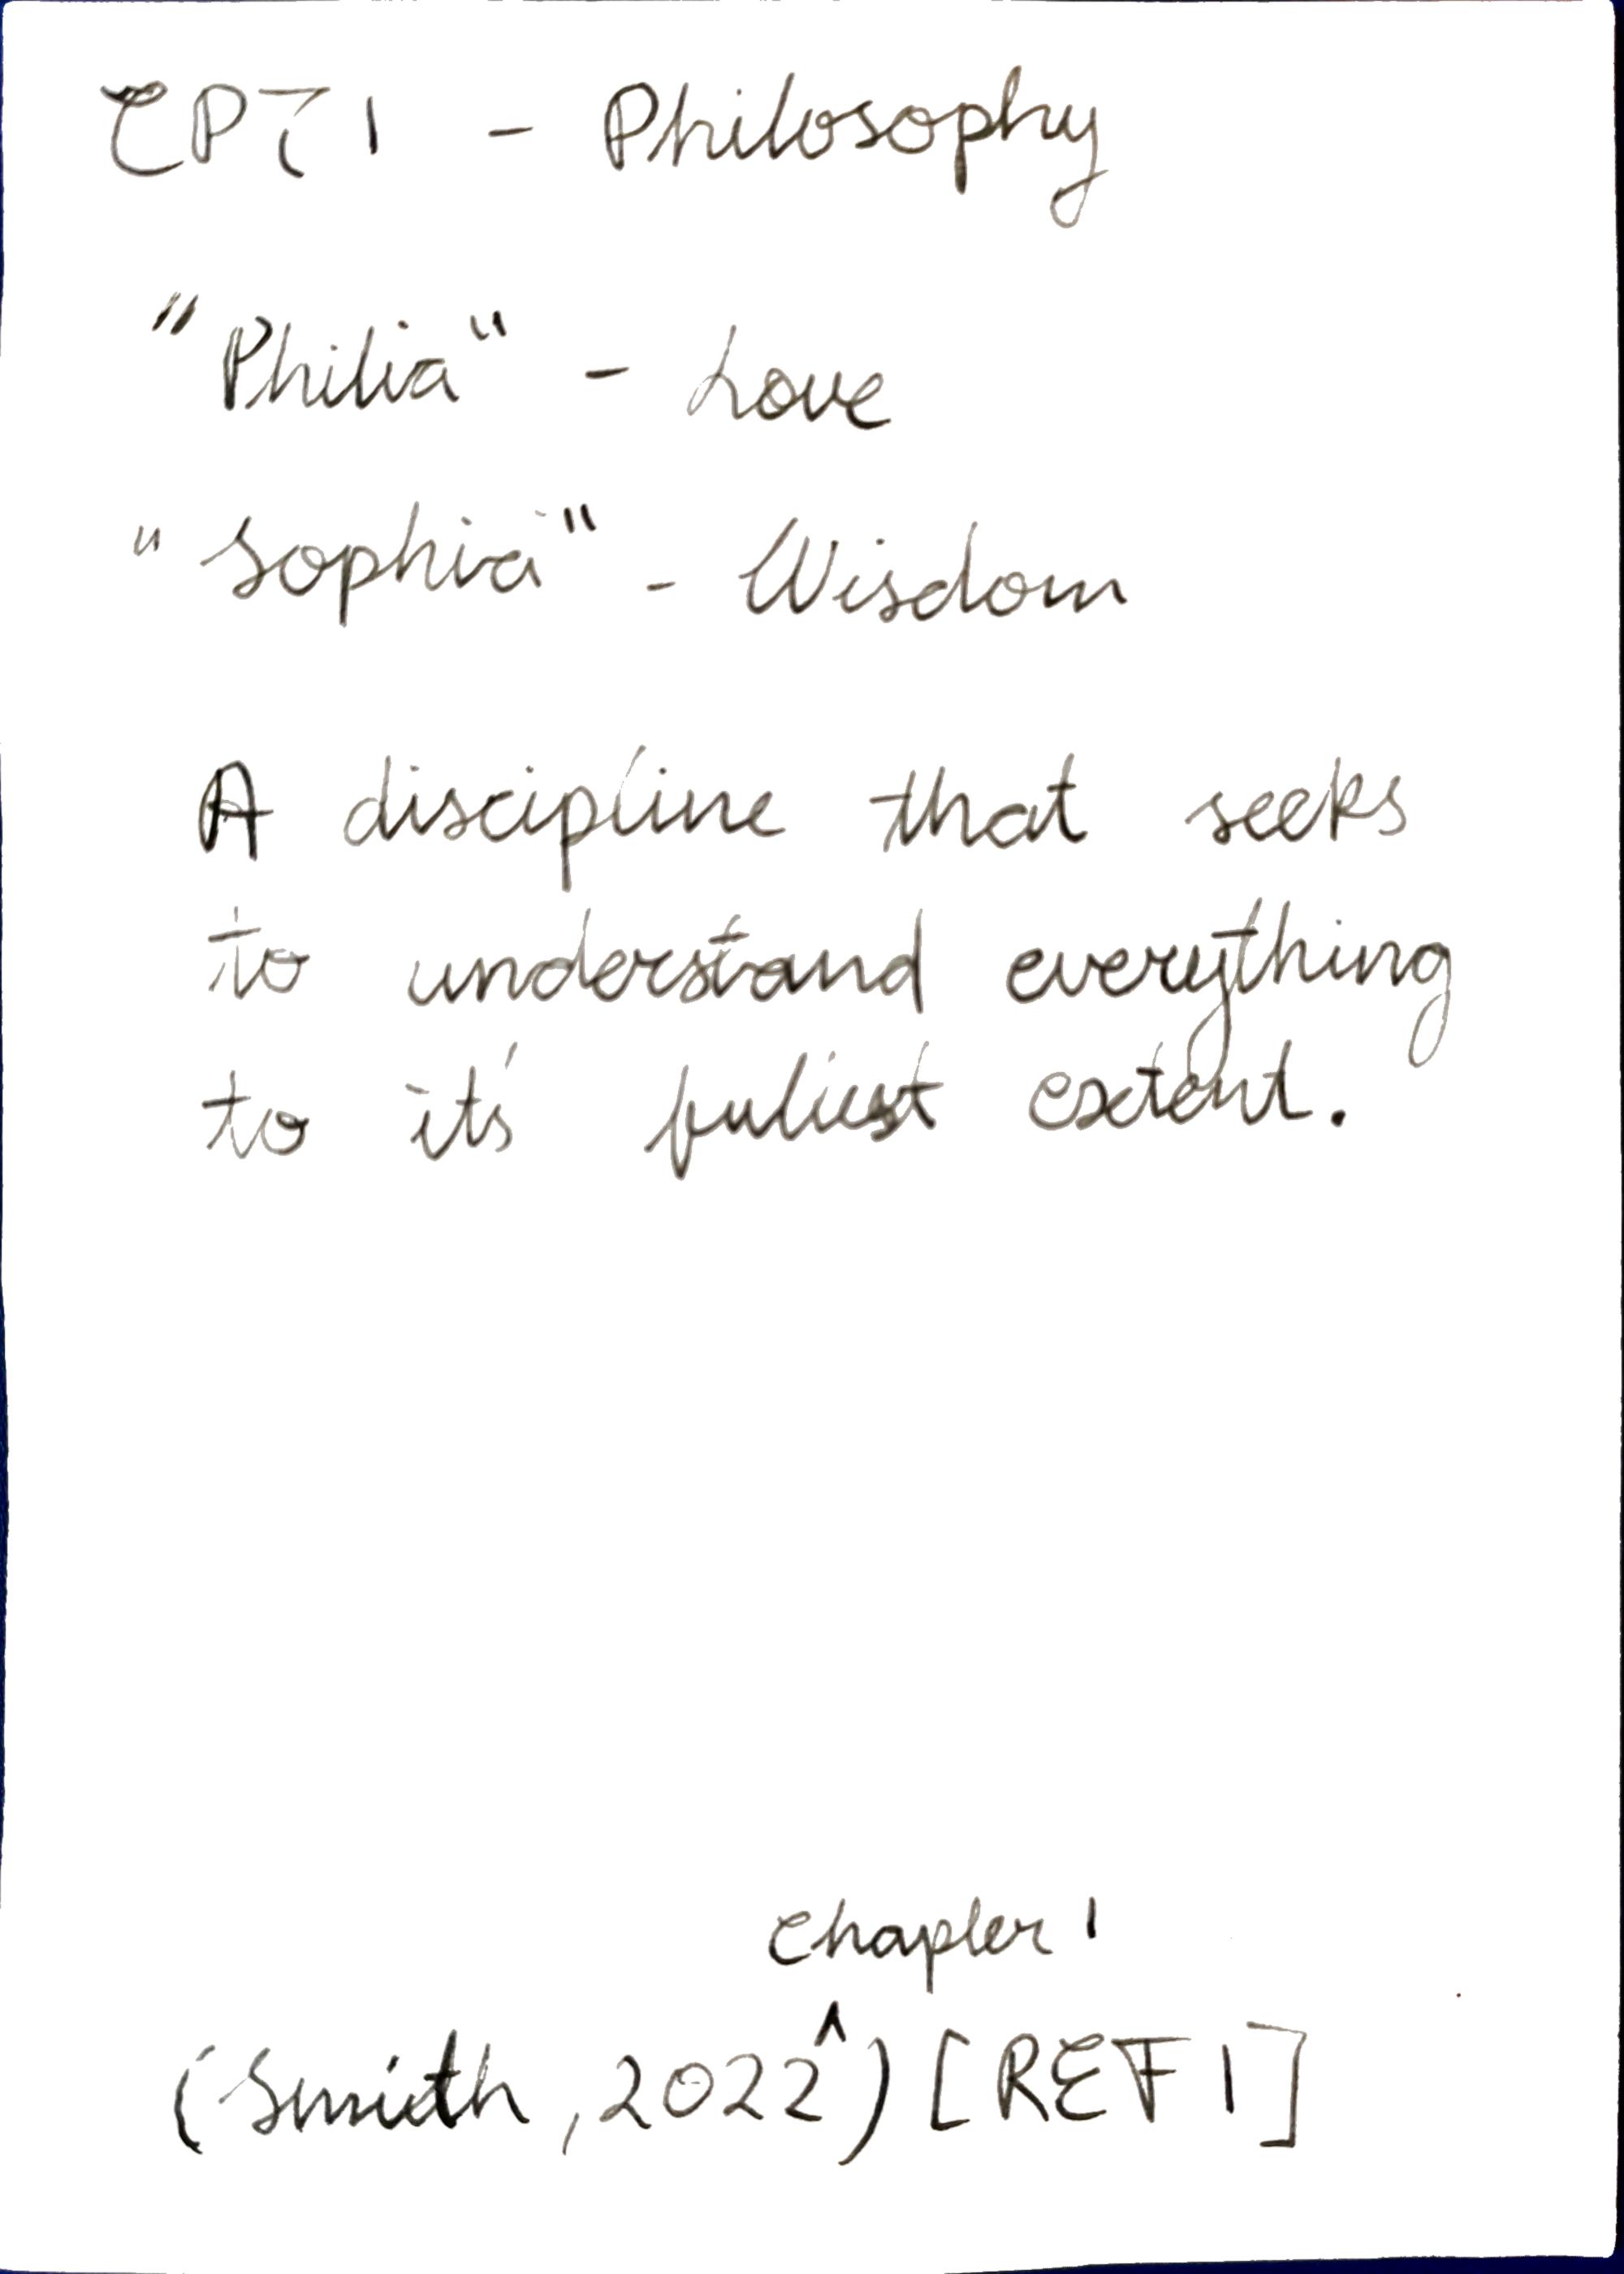 CPT 1 - Philosophy
"Philia" - Love
"Sophia" - Wisdom
A discipline that seeks
to understand everything
to it's fullest extent.
Chapter 1
(Smith, 2022^) [REF 1]